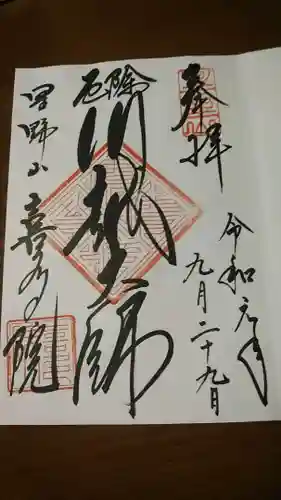 奉拝
令和元年
九月二十九日
厄除
川越大師
星野山
喜多院